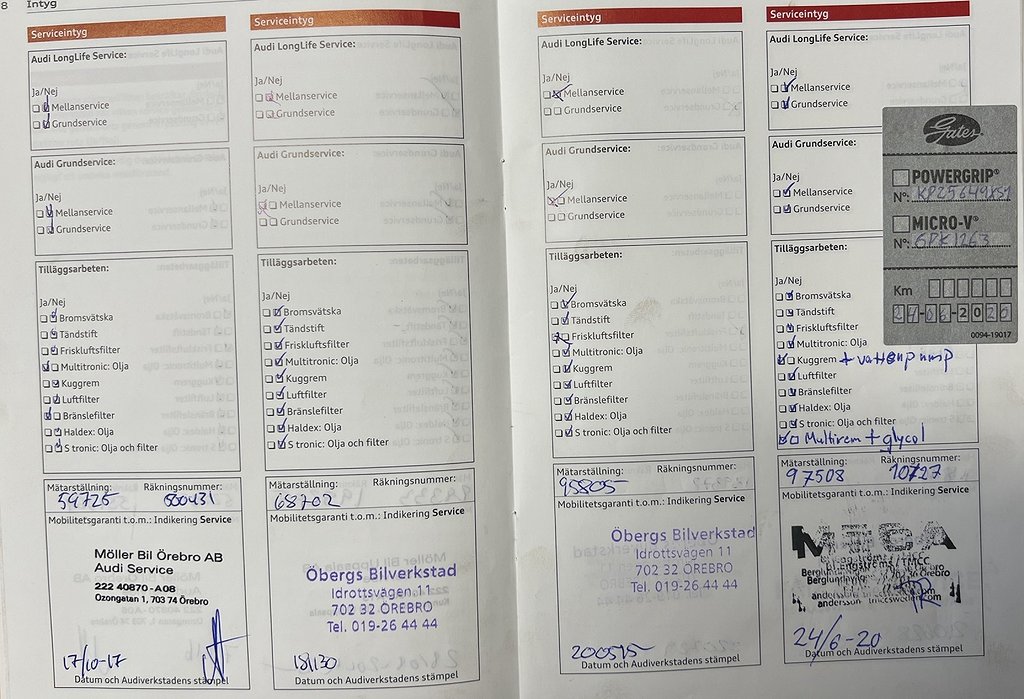 8 Intyg
Serviceintyg
Audi LongLife Service:
Ja/Nej
Mellanservice
Grundservice
Audi Grundservice:
Ja/Nej
Mellanservice
Grundservice
Tilläggsarbeten:
Ja/Nej
Bromsvätska
Tändstift
Friskluftsfilter
Multitronic: Olja
Kuggrem
Luftfilter
Bränslefilter
Haldex: Olja
S tronic: Olja och filter
Mätarställning: Räkningsnummer:
59725
Mobilitetsgaranti t.o.m.: Indikering Service
Möller Bil Örebro AB
Audi Service
222 40870-A08
Ozongatan 1, 703 74 Örebro
17/10-17
Datum och Audiverkstadens stämpel
Serviceintyg
Audi LongLife Service:
Ja/Nej
Mellanservice
Grundservice
Audi Grundservice:
Ja/Nej
Mellanservice
Grundservice
Tilläggsarbeten:
Ja/Nej
Bromsvätska
Tändstift
Friskluftsfilter
Multitronic: Olja
Kuggrem
Luftfilter
Bränslefilter
Haldex: Olja
S tronic: Olja och filter
Mätarställning: Räkningsnummer:
68702
Mobilitetsgaranti t.o.m.: Indikering Service
Öbergs Bilverkstad
Idrottsvägen 11
702 32 ÖREBRO
Tel. 019-26 44 44
Datum och Audiverkstadens stämpel
Serviceintyg
Audi LongLife Service:
Ja/Nej
Mellanservice
Grundservice
Audi Grundservice:
Ja/Nej
Mellanservice
Grundservice
Tilläggsarbeten:
Ja/Nej
Bromsvätska
Tändstift
Friskluftsfilter
Multitronic: Olja
Kuggrem
Luftfilter
Bränslefilter
Haldex: Olja
S tronic: Olja och filter
Mätarställning: Räkningsnummer:
95805
Mobilitetsgaranti t.o.m.: Indikering Service
Öbergs Bilverkstad
Idrottsvägen 11
702 32 ÖREBRO
Tel. 019-26 44 44
200515
Datum och Audiverkstadens stämpel
Serviceintyg
Audi LongLife Service:
Ja/Nej
Mellanservice
Grundservice
Audi Grundservice:
Ja/Nej
Mellanservice
Grundservice
Tilläggsarbeten:
Ja/Nej
Bromsvätska
Tändstift
Friskluftsfilter
Multitronic: Olja
Kuggrem + vattenpump
Luftfilter
Bränslefilter
Haldex: Olja
S tronic: Olja och filter
Multirem + glycol
Mätarställning: Räkningsnummer:
97503 10727
Mobilitetsgaranti t.o.m.: Indikering Service
MEGA
24/6-20
Datum och Audiverkstadens stämpel
Gates
POWERGRIP®
Nº: KP25649XS1
MICRO-V®
Nº: 6PK1263
Km
24-06-2020
0094-19017